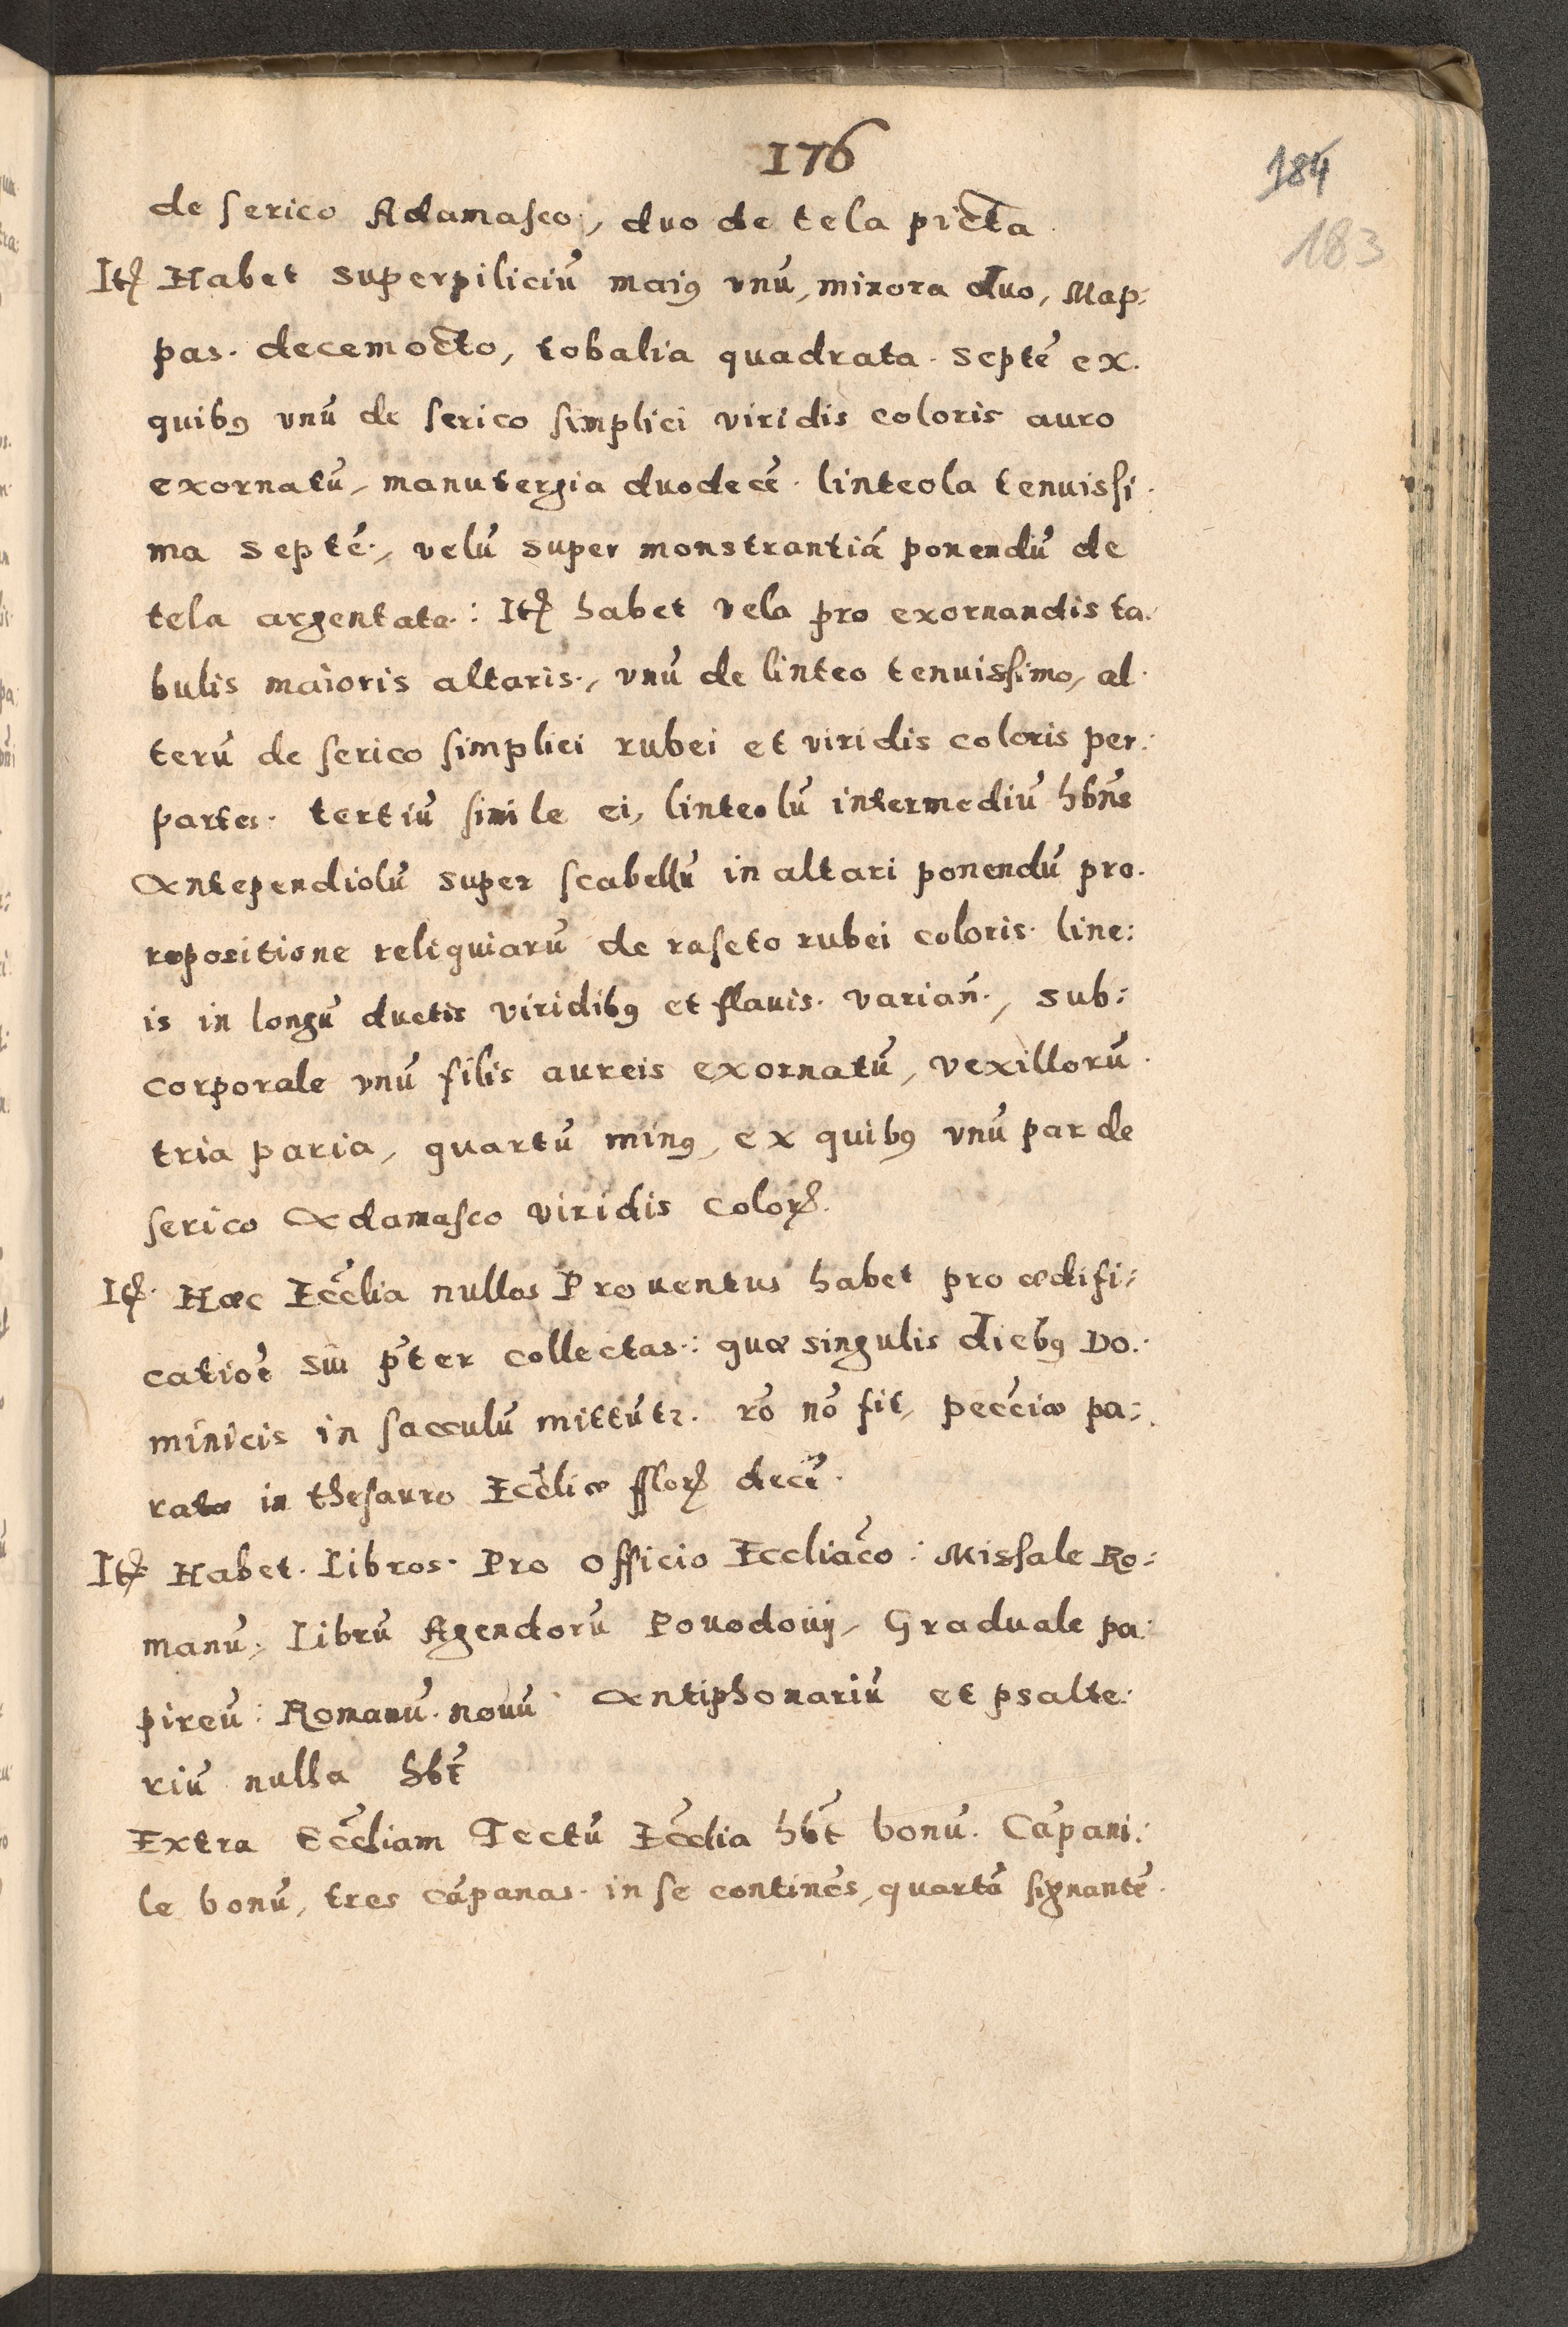 176
184
183
de serico Adamasco, duo de tela picta
Itē Habet superpiliciū maiꝰ vnū, minora duo, Map:
pas. decemocto, tobalia quadrata. septē ex.
quibꝰ vnū de serico simplici viridis coloris auro
exornatū, manutergia duodecē. linteola tenuissi.
ma septē., velū super monstrantiā ponendū de
tela argentata.: Itē habet vela pro exornandis ta:
bulis maioris altaris., vnū de linteo tenuissimo, al.
terū de serico simplici rubei et viridis coloris per:
partes. tertiū simile ei, linteolū intermediū hbn̄s
Antependiolū super scabellū in altari ponendū pro.
repositione reliquiarū de raseto rubei coloris. line:
is in longū ductis viridibꝰ et flauis. varian̄., sub:
corporale vnū filis aureis exornatū, vexillorū.
tria paria, quartū minꝰ, ex quibꝰ vnū par de
serico Adamasco viridis colorꝭ.
Itē. Hæc Eccl̄ia nullos Prouentus habet pro ædifi:
catiōe sui p̄ter collectas.: quæ singulis diebꝰ Do.:
minicis in sacculū mittūtr. rō nō fit, pecc̄iæ pa:
ratæ in thesauro Eccl̄iæ fflorꝭ decē.
Itē Habet. Libros. Pro Officio Eccliāco: Missale Ro:
manū, Librū Agendorū Pouodouij, Graduale pa:
pireū: Romanū. nouū Antiphonariū et psalte:
riū nulla hb̄t
Extra Eccl̄iam Tectū Eccl̄ia hb̄t bonū. Cāpani:
le bonū, tres cāpanas. in se continēs, quartā signantē.